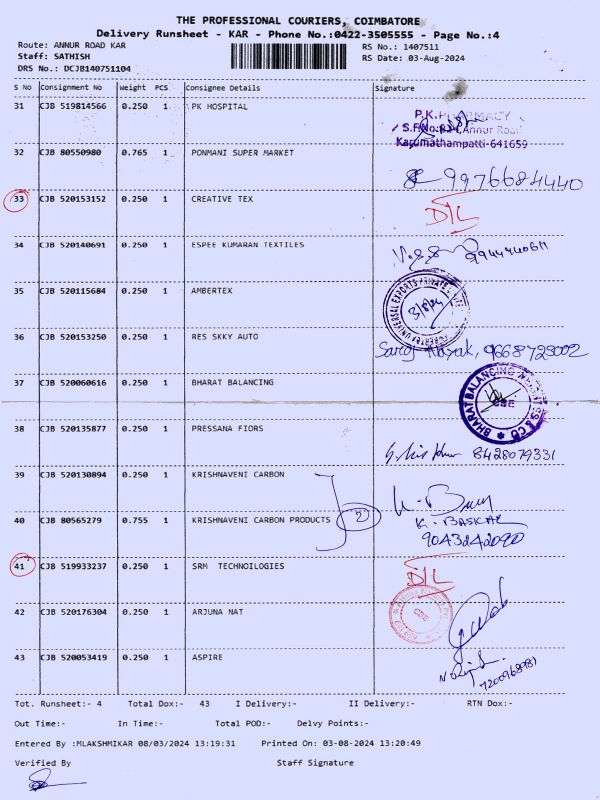 THE PROFESSIONAL COURIERS, COIMBATORE
Delivery Runsheet - KAR - Phone No.:0422-3505555 - Page No.:4
Route: ANNUR ROAD KAR RS No.: 1407511
Staff: SATHISH RS Date: 03-Aug-2024
DRS No.: DCJB140751104
S No Consignment No Weight PCS Consignee Details Signature
31 CJB 519814566 0.250 1 PK HOSPITAL
P.K.PHARMACY
S.F.No: Annur Road
Karumathampatti-641659
32 CJB 80550980 0.765 1 PONMANI SUPER MARKET
9976684440
33 CJB 520153152 0.250 1 CREATIVE TEX
D/L
34 CJB 520140691 0.250 1 ESPEE KUMARAN TEXTILES
35 CJB 520115684 0.250 1 AMBERTEX
UNIVERSAL EXPORTS PRIVATE
3/8/24
36 CJB 520153250 0.250 1 RES SKKY AUTO
Saroj Nayak, 9668723002
37 CJB 520060616 0.250 1 BHARAT BALANCING
BHARAT BALANCING & CO
CBE
38 CJB 520135877 0.250 1 PRESSANA FIORS
8428079331
39 CJB 520130894 0.250 1 KRISHNAVENI CARBON
40 CJB 80565279 0.755 1 KRISHNAVENI CARBON PRODUCTS 2
K. BASKAR
9043242090
41 CJB 519933237 0.250 1 SRM TECHNOILOGIES
D/L
42 CJB 520176304 0.250 1 ARJUNA NAT
CBE
43 CJB 520053419 0.250 1 ASPIRE
7200968981
Tot. Runsheet:- 4 Total Dox:- 43 I Delivery:- II Delivery:- RTN Dox:-
Out Time:- In Time:- Total POD:- Delvy Points:-
Entered By :MLAKSHMIKAR 08/03/2024 13:19:31 Printed On: 03-08-2024 13:20:49
Verified By Staff Signature